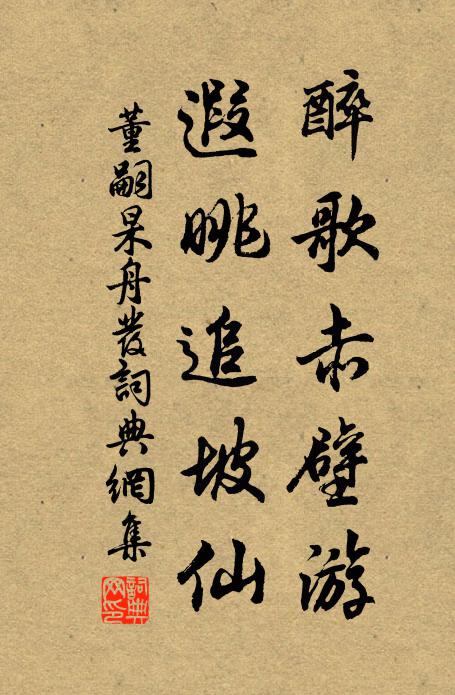 醉歌赤壁游
遐眺追坡仙
董嗣杲舟發詞典網集
詞典網印